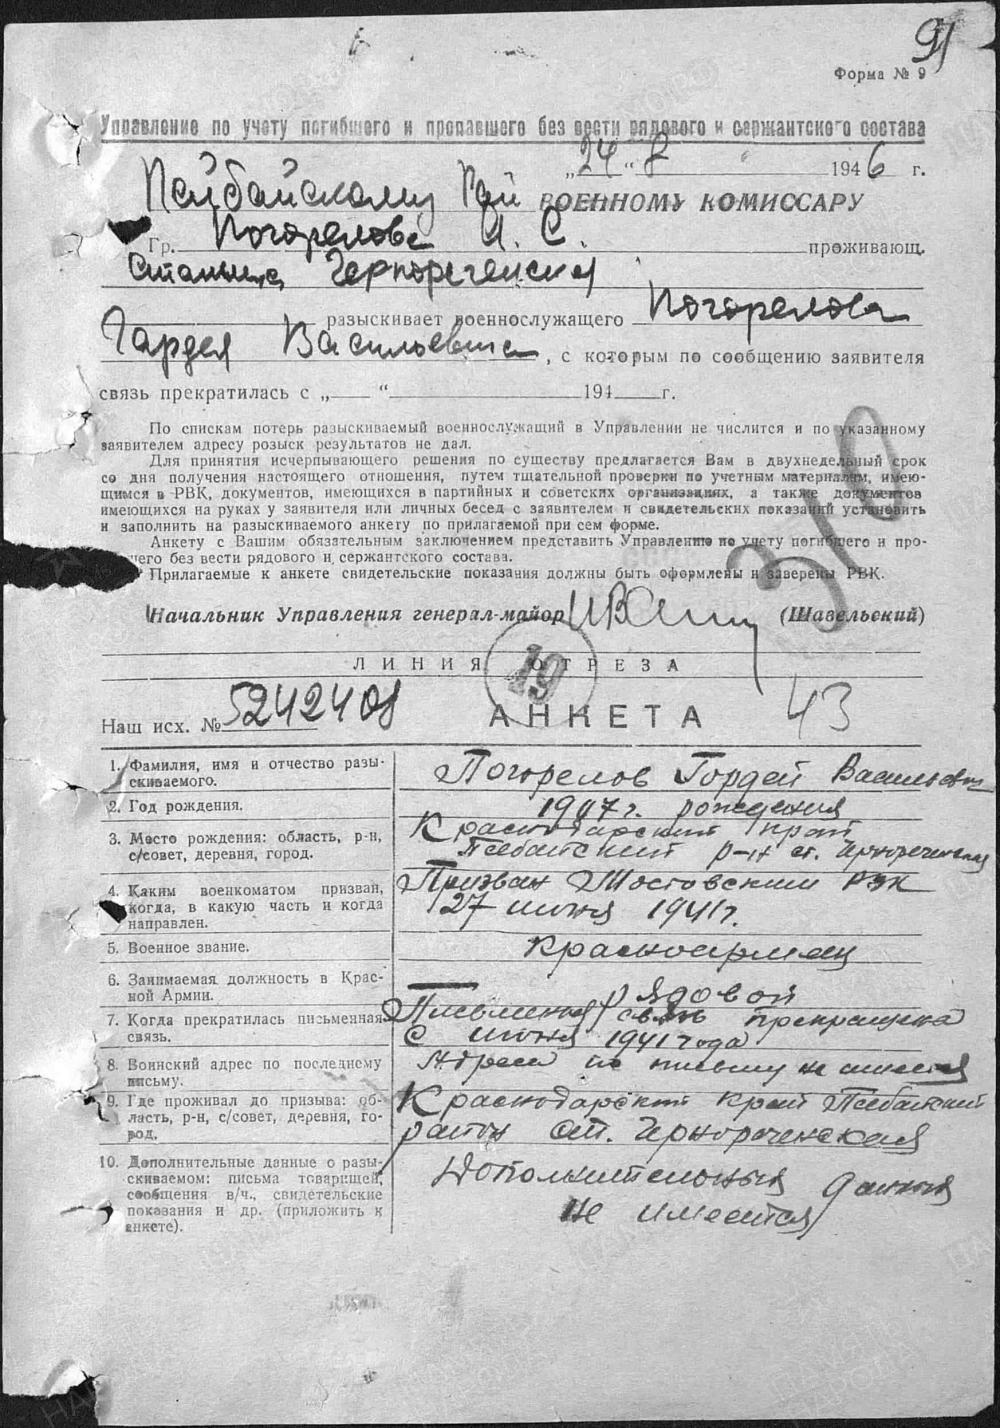 91
Форма № 9
Управление по учету погибшего и пропавшего без вести рядового и сержантского состава
„24“ 8 1946 г.
Псебайскому Рай ВОЕННОМУ КОМИССАРУ
Гр. Погорелова А. С. проживающ.
Станица Черноречепская
разыскивает военнослужащего Погорелова
Гардея Васильевича, с которым по сообщению заявителя
связь прекратилась с „ “ 194 г.
По спискам потерь разыскиваемый военнослужащий в Управлении не числится и по указанному
заявителем адресу розыск результатов не дал.
Для принятия исчерпывающего решения по существу предлагается Вам в двухнедельный срок
со дня получения настоящего отношения, путем тщательной проверки по учетным материалам, имею-
щимся в РВК, документов, имеющихся в партийных и советских организациях, а также документов
имеющихся на руках у заявителя или личных бесед с заявителем и свидетельских показаний установить
и заполнить на разыскиваемого анкету по прилагаемой при сем форме.
Анкету с Вашим обязательным заключением представить Управлению по учету погибшего и про-
шего без вести рядового и сержантского состава.
Прилагаемые к анкете свидетельские показания должны быть оформлены и заверены РВК.
Начальник Управления генерал-майор (Шавельский)
ЛИНИЯ ОТРЕЗА
19
Наш исх. № 5242408
АНКЕТА 43
1. Фамилия, имя и отчество разы-
скиваемого.
Погорелов Гордей Васильевич
2. Год рождения.
1907 г. рождения
3. Место рождения: область, р-н,
с/совет, деревня, город.
Краснодарский край
Псебайский р-н ст. Чернореченская
4. Каким военкоматом призван,
когда, в какую часть и когда
направлен.
Призван Мостовским РВК
27 июня 1941 г.
5. Военное звание.
Красноармеец
6. Занимаемая должность в Крас-
ной Армии.
рядовой
7. Когда прекратилась письменная
связь.
Письменная связь прекращена
с июня 1941 года
8. Воинский адрес по последнему
письму.
Адреса по письму не имеется
9. Где проживал до призыва: об-
ласть, р-н, с/совет, деревня, го-
род.
Краснодарский край Псебайский
район ст. Чернореченская
10. Дополнительные данные о разы-
скиваемом: письма товарищей,
сообщения в/ч., свидетельские
показания и др. (приложить к
анкете).
Дополнительных данных
не имеется